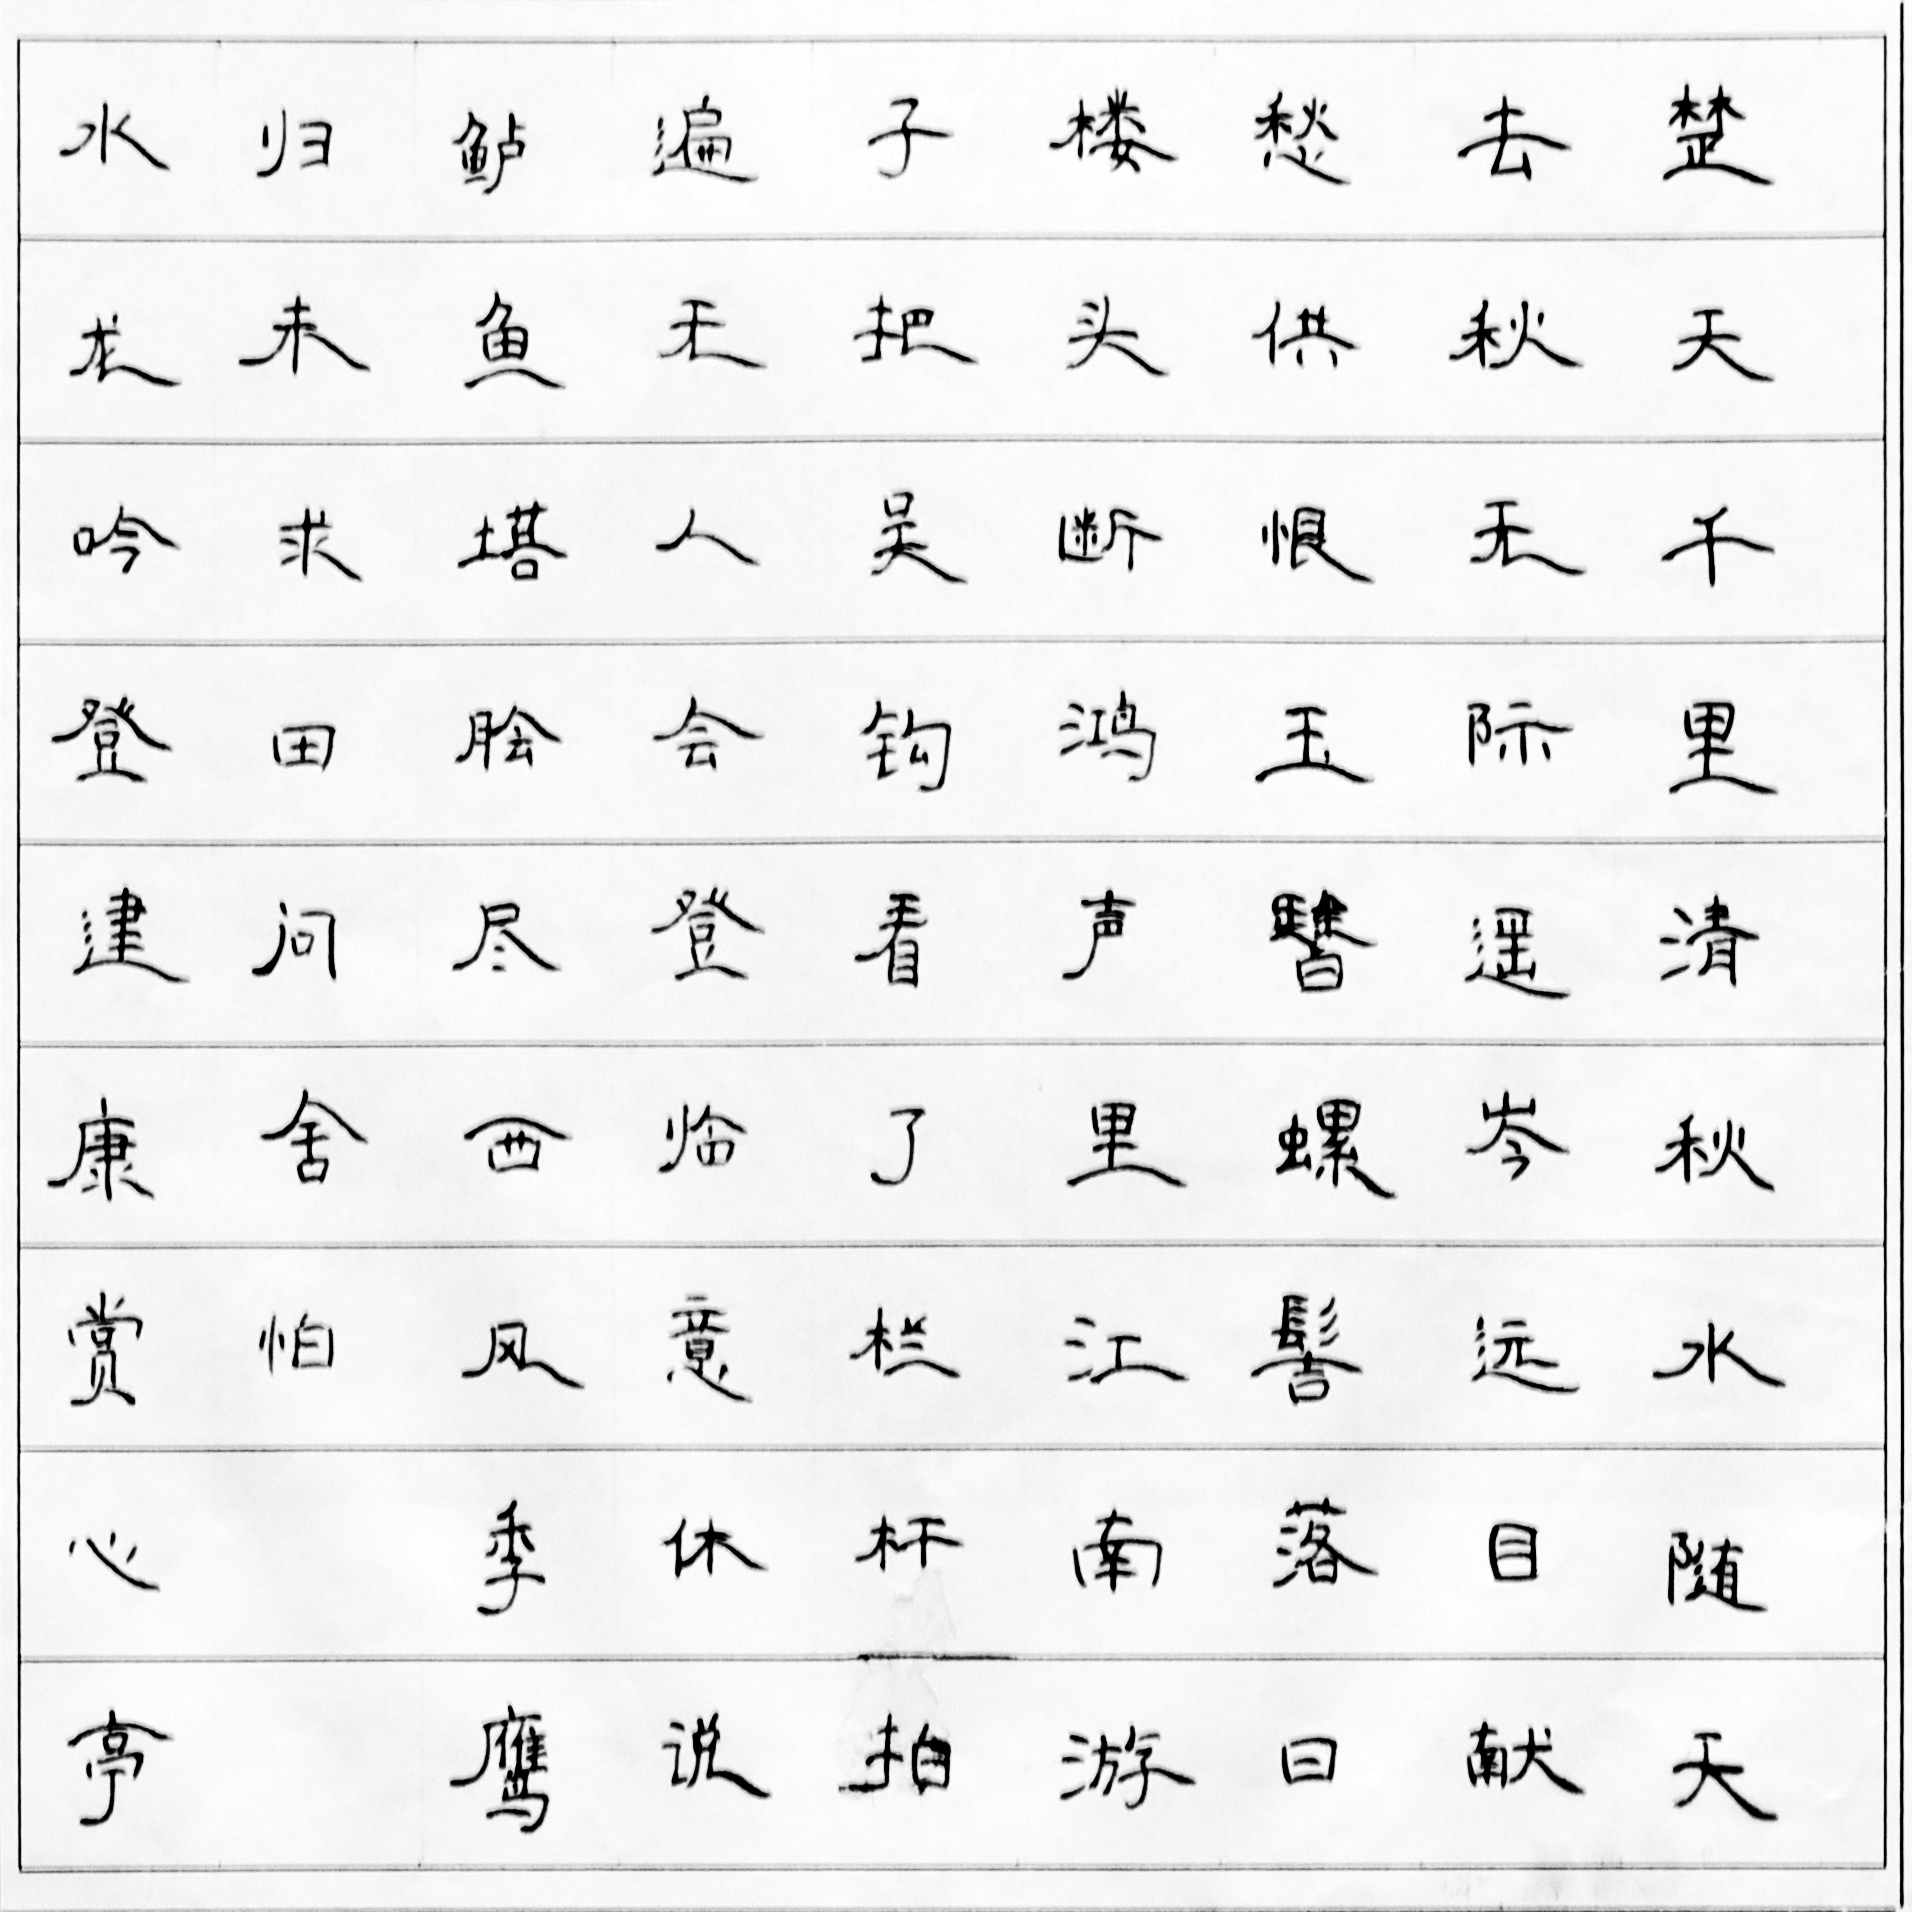 楚天千里清秋水随天
去秋无际遥岑远目献
愁供恨玉簪螺髻落日
楼头断鸿声里江南游
子把吴钩看了栏杆拍
遍无人会登临意休说
鲈鱼塔脍尽西风季鹰
归未求田问舍怕
水龙吟登建康赏心亭